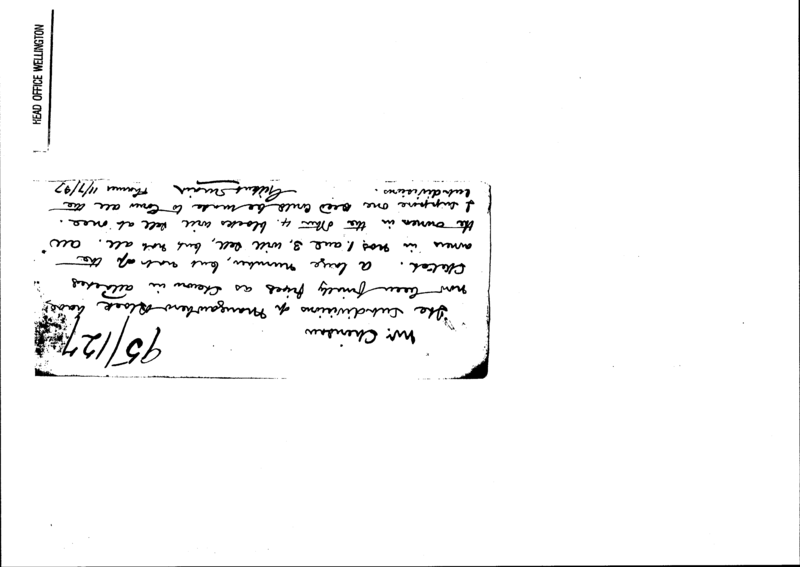 HEAD OFFICE WELLINGTON
95/127
Mr. Sheridan
The Subdivisions of Mangawhero Block have
now been finally fixed as shown in attached
sketch. A large number, but not of the
owners in Nos 1, and 3, will sell, but not all. All
the owners in the other 4. blocks will sell at once.
I suppose one deed could be made to cover all the
subdivisions. Gilbert Mair Thames 11/7/97